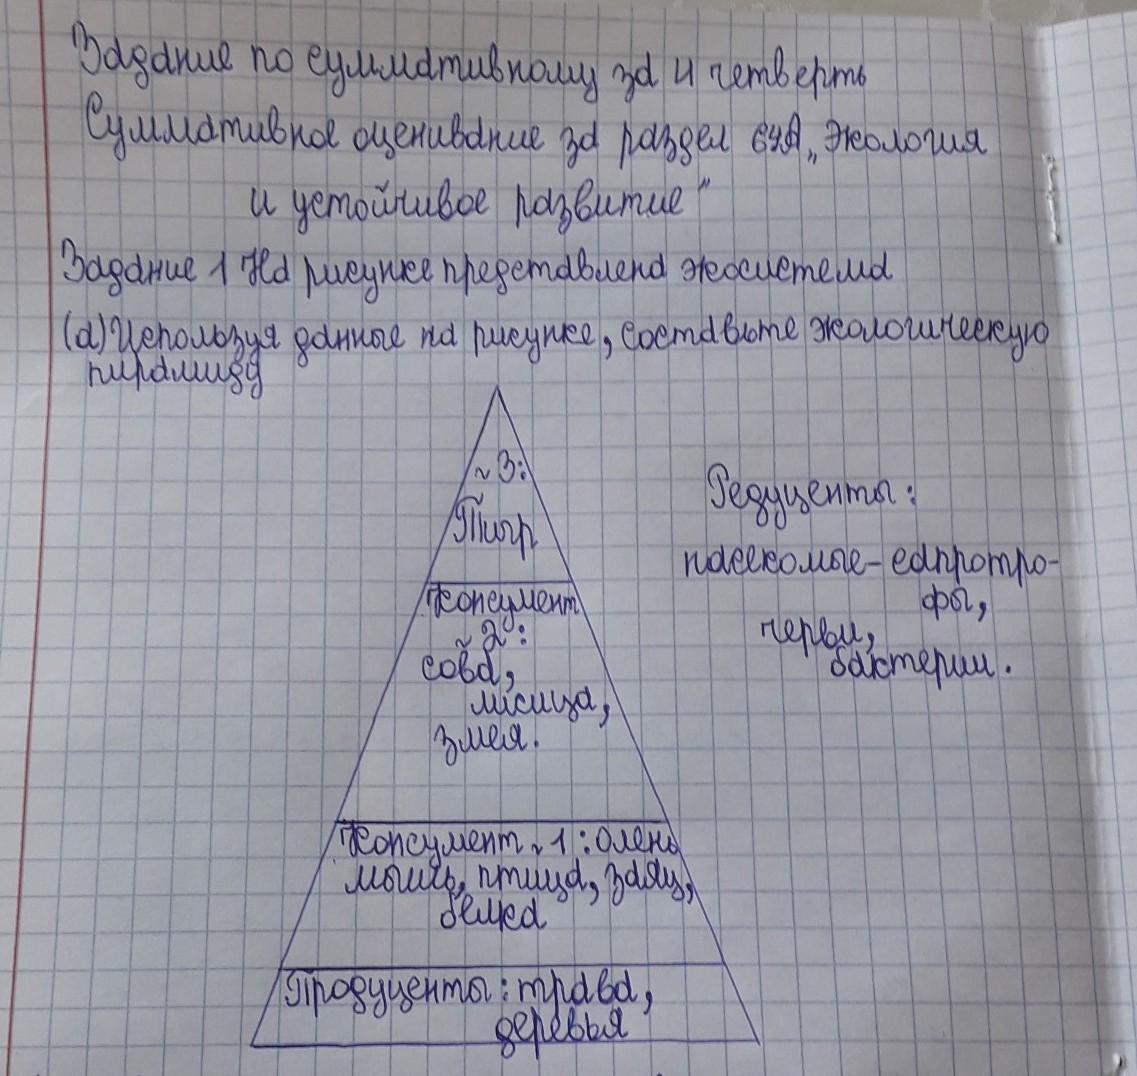 Задание по суммативному за 4 четверть
Суммативное оценивание за раздел 6.4А „Экология
и устойчивое развитие"
Задание 1 На рисунке представлена экосистема
(а) Используя данные на рисунке, составьте экологическую
пирамиду
~3:
Тигр
Консумент
~2:
сова,
лисица,
змея.
Консумент ~1: олень
мышь, птица, заяц,
белка
Продуценты: трава,
деревья
Редуценты:
насекомые-сапротро-
фы,
черви,
бактерии.